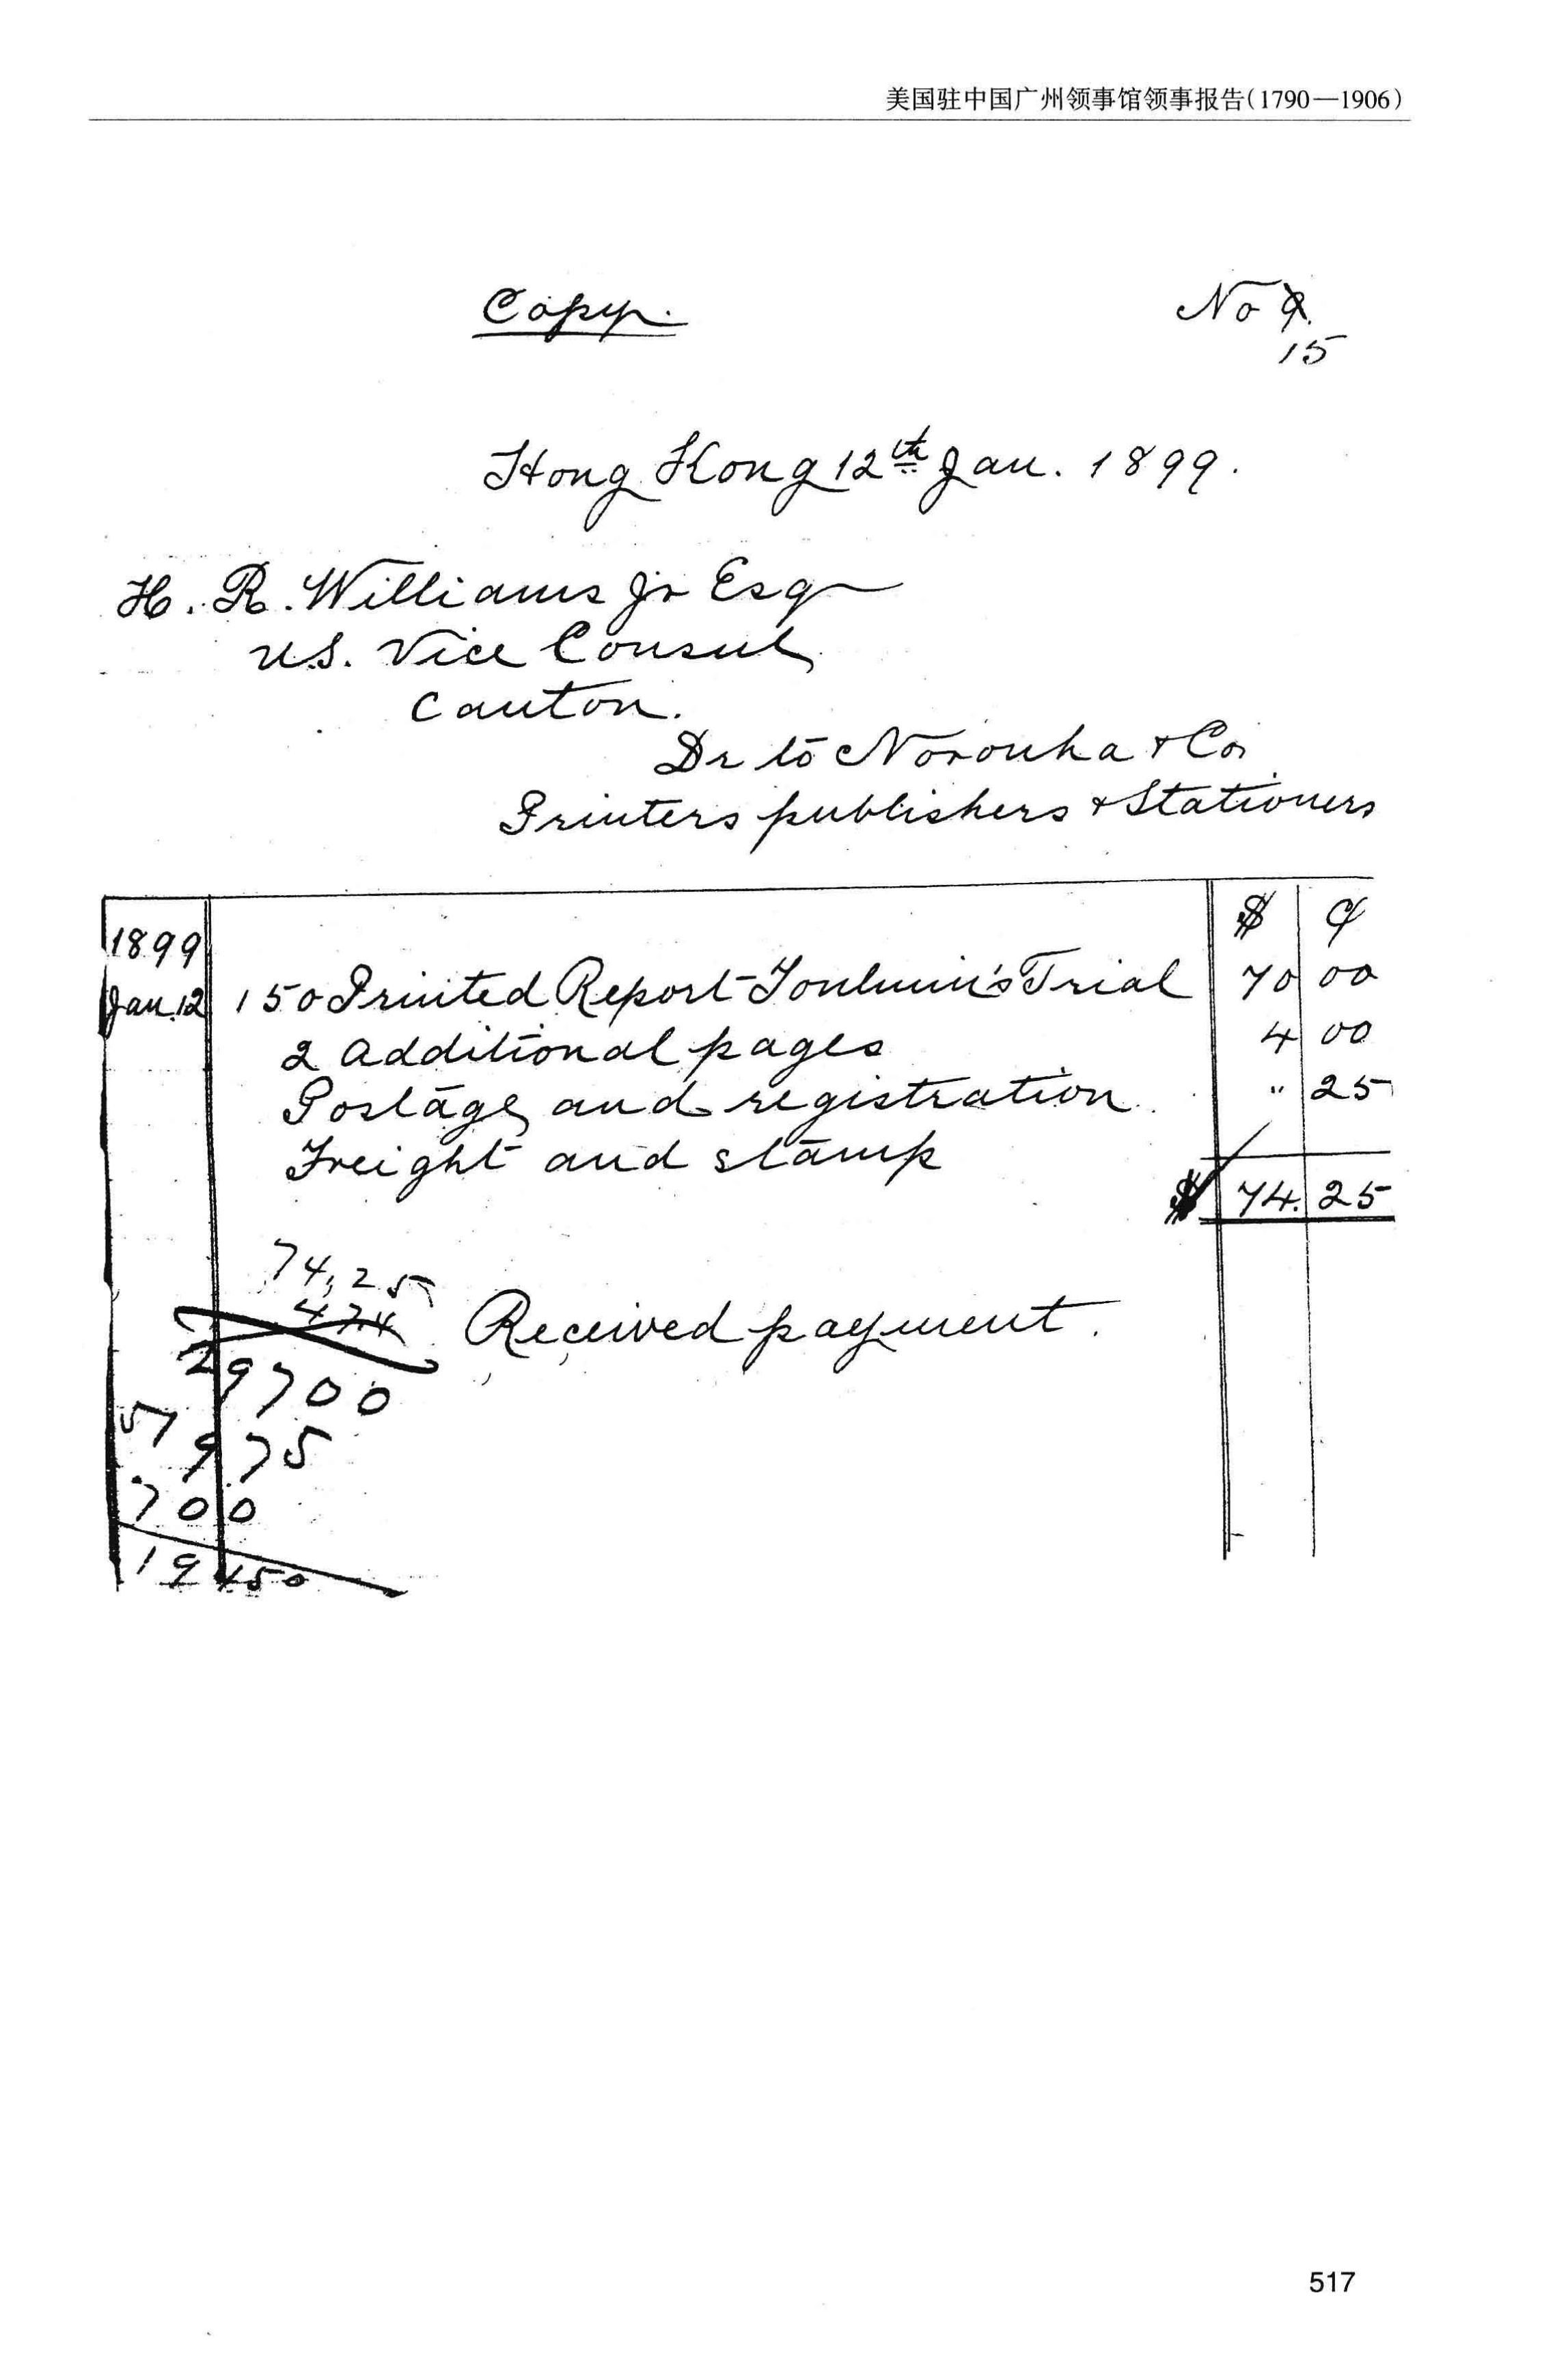 美国驻中国广州领事馆领事报告(1790—1906)
Copy.
No 9.
15
Hong Kong 12th Jan. 1899.
H. R. Williams Jr Esq
U.S. Vice Consul
Canton.
Dr to Noronha & Co
Printers publishers & Stationers
$ ¢
1899
Jan. 12 150 Printed Report Toulmin's Trial 70 00
2 additional pages 4 00
Postage and registration " 25
Freight and stamp
$ 74. 25
74,25
474
Received payment.
29700
51975
700
19450